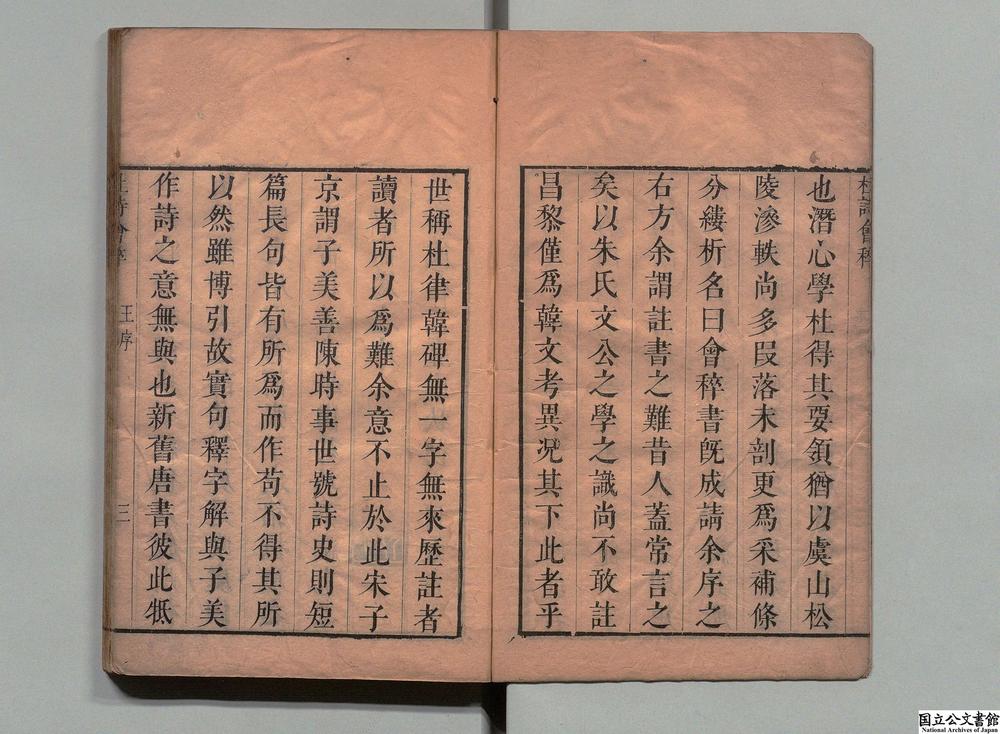 杜詩會稡
也潛心學杜得其要領猶以虞山松
陵滲軼尚多段落未剖更爲采補條
分縷析名曰會稡書旣成請余序之
右方余謂註書之難昔人蓋常言之
矣以朱氏文公之學之識尚不敢註
昌黎僅爲韓文考異况其下此者乎
世稱杜律韓碑無一字無來歷註者
讀者所以爲難余意不止於此宋子
京謂子美善陳時事世號詩史則短
篇長句皆有所爲而作苟不得其所
以然雖博引故實句釋字解與子美
作詩之意無與也新舊唐書彼此牴
杜詩會稡 王序 三
国立公文書館
National Archives of Japan